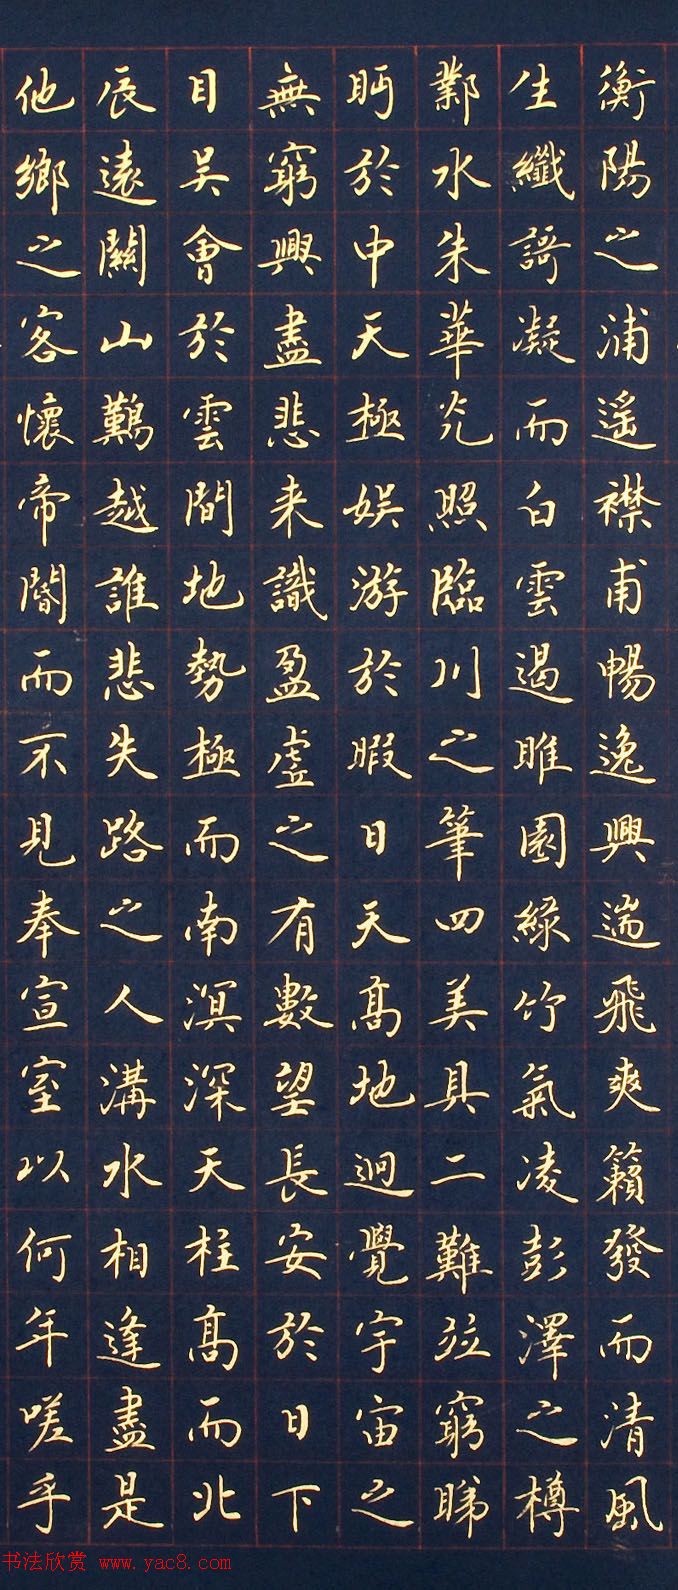 衡陽之浦遥襟甫暢逸興遄飛爽籟發而清風
生纖謌凝而白雲遏睢園緑竹氣凌彭澤之樽
鄴水朱華光照臨川之筆四美具二難竝窮睇
眄於中天極娱游於暇日天高地迥覺宇宙之
無窮興盡悲来識盈虚之有數望長安於日下
目吴會於雲間地勢極而南溟深天柱高而北
辰遠關山難越誰悲失路之人溝水相逢盡是
他鄉之客懷帝閽而不見奉宣室以何年嗟乎
书法欣赏 www.yac8.com